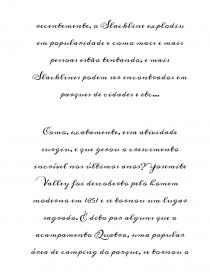 recentemente, o Slackline explodiu
em popularidade e como mais e mais
pessoas estão tentando, e mais
Slacklines podem ser encontrados em
parques de cidades e etc...
Como, exatamente, essa atividade
surgiu, e que gerou o crescimento
incrível nos últimos anos? Yosemite
Valley foi descoberto pelo homem
moderno em 1851 e se tornou um lugar
sagrado. É dito por alguns que o
acampamento Quatro, uma popular
área de camping do parque, se tornou o